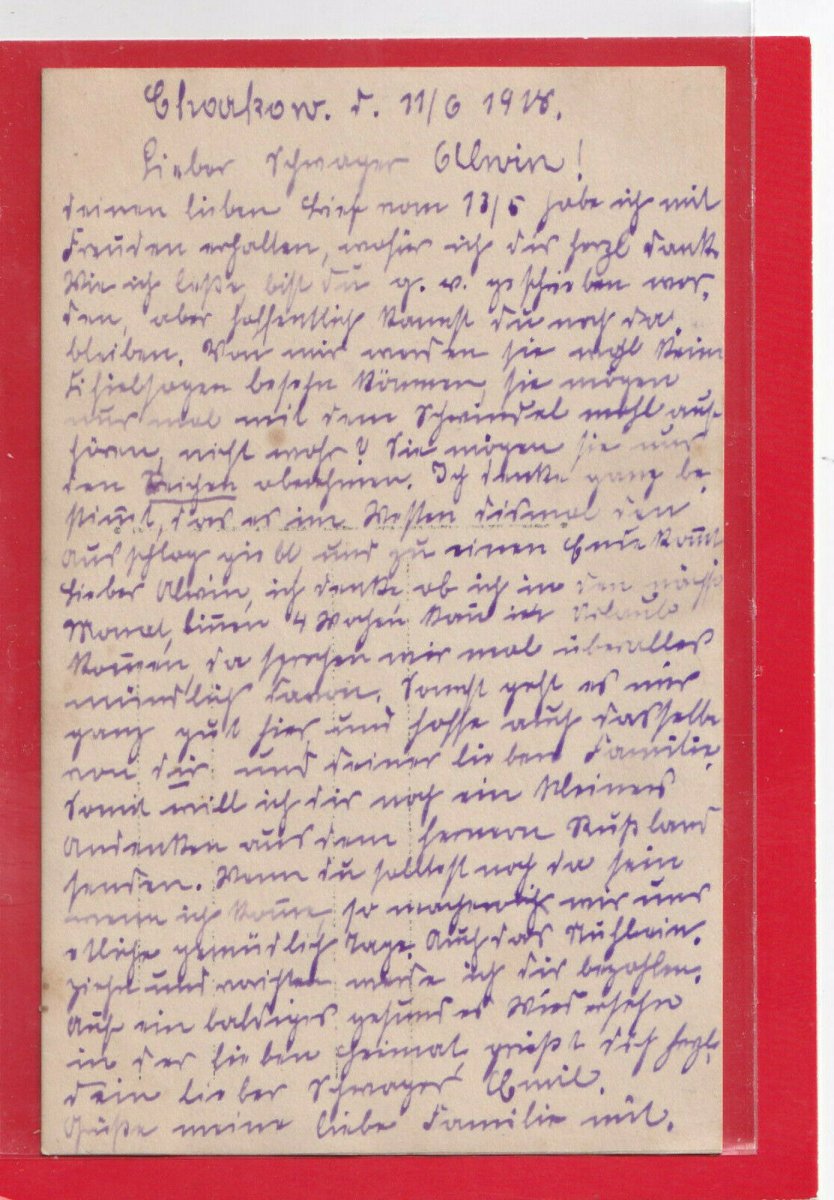 Charkow. d. 11/6 1918.
Lieber Schwager Alwin!
Deinen lieben Brief vom 13/5 habe ich mit
Freuden erhalten, wofür ich dir herzl danke
Wie ich leße, bist du g. v. geschrieben wor,
den, aber hoffentlich kannst du noch da
bleiben. Von mir werden sie wohl kein
besehn können, sie mögen
nur mal mit dem Schwindel wohl auf,
hören, nicht wahr? Sie mögen sie nur
den Reichen abnehmen. Ich denke ganz be,
stimt, das es im Westen dismal den
ausschlag giebt und zu einen Ende komt
Lieber Alwin, ich denke ob ich in den nächst
Monat, binen 4 Wochen kan in Urlaub
komen, da sprechen wir mal überalles
mündlich davon. Sonst geht es mir
ganz gut hier und hoffe auch dasselbe
von dir und deiner lieben Familie.
Somit will ich dir noch ein kleines
Andenken aus dem fernern Rußland
senden. Wenn du solltest noch da sein
wenn ich kome, so machen wir uns
etliche gemüdlich Tage. Auch das
ziehn und werde ich dir bezahlen.
Auf ein baldiges gesundes Wiedersehn
in der lieben Heimat, grüßt dich herzl.
dein lieber Schwager Emil.
Grüße meine liebe Familie mit.